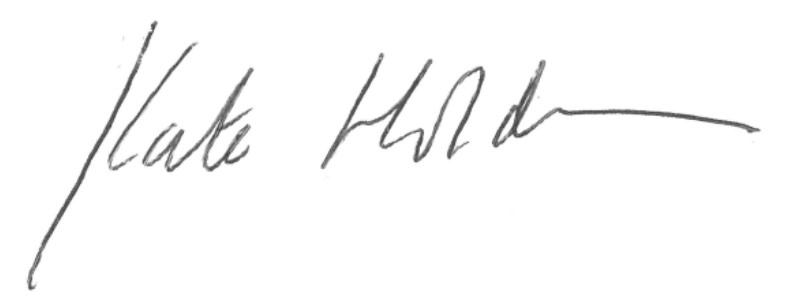 Kate Hold